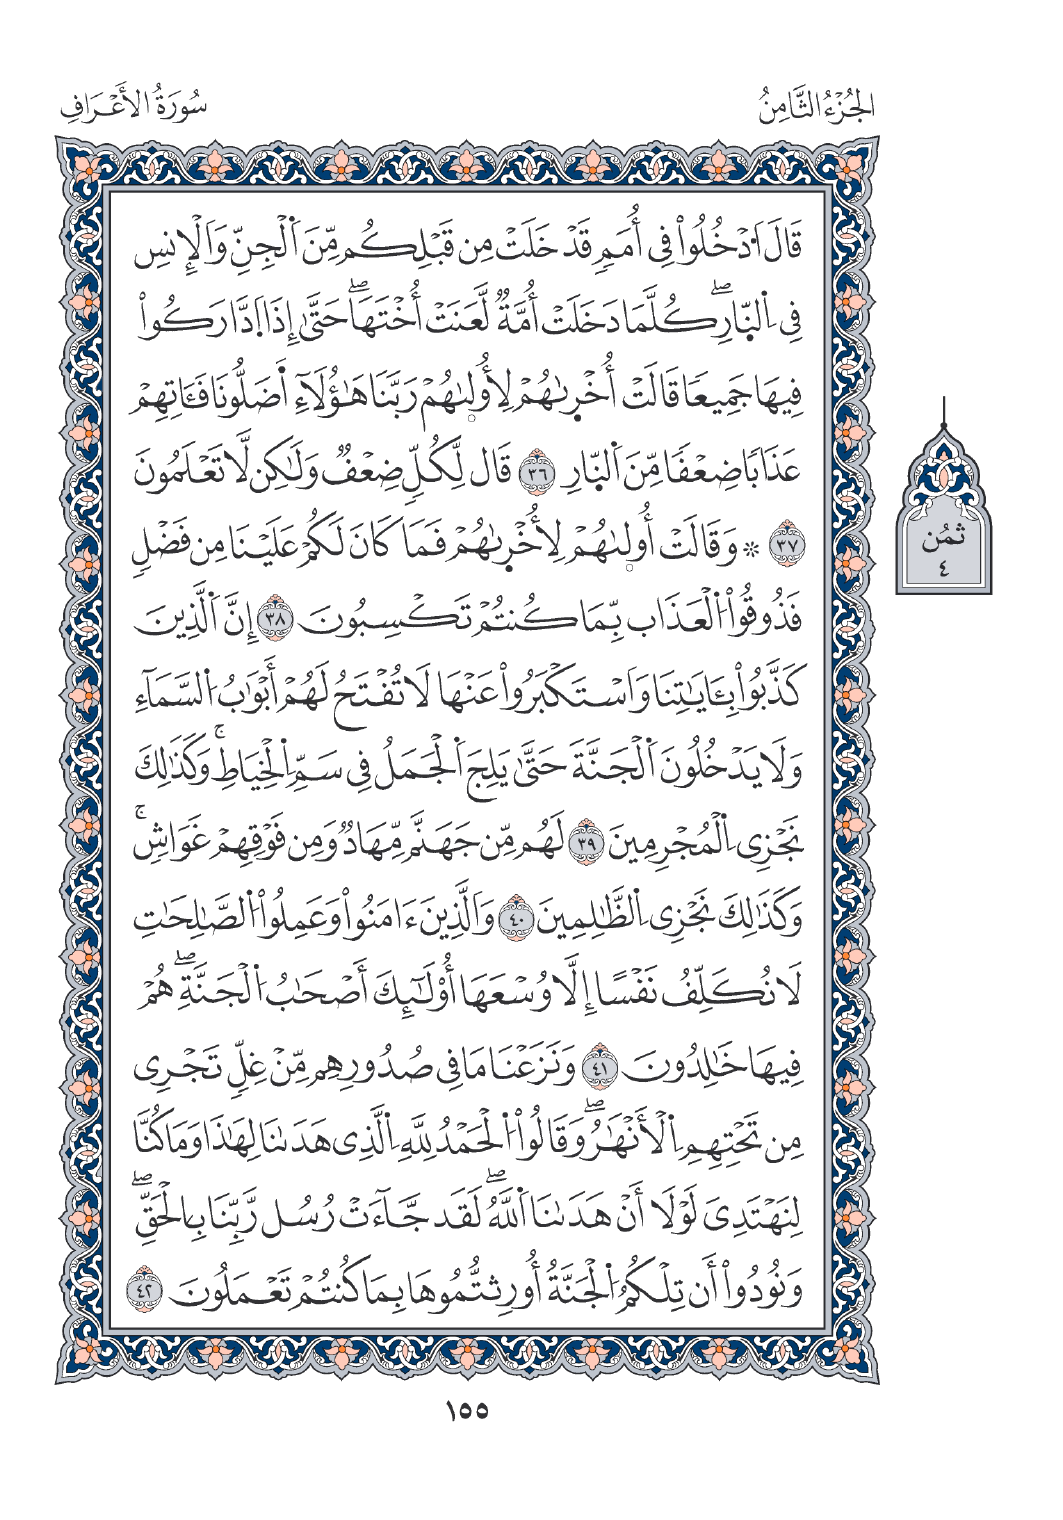 الجُزْءُ الثَّامِنُ
سُورَةُ الأَعْرَافِ
قَالَ اَدْخُلُواْ فِى أُمَمٖ قَدْ خَلَتْ مِن قَبْلِكُم مِّنَ اَلْجِنِّ وَالْإِنسِ
فِى اِلنّ۪ارِۖ كُلَّمَا دَخَلَتْ أُمَّةٌ لَّعَنَتْ أُخْتَهَاۖ حَتَّىٰ إِذَا اَدَّارَكُواْ
فِيهَا جَمِيعَا قَالَتْ أُخْر۪ىٰهُمْ لِأُول۪ىٰهُمْ رَبَّنَا هَٰؤُلَآءِ أَضَلُّونَا فَـَٔاتِهِمْ
عَذَابًا ضِعْفَا مِّنَ اَلنّ۪ارِ ٣٦ قَال لِّكُلّٖ ضِعْفٌ وَلَٰكِن لَّا تَعْلَمُونَ
٣٧ ۞ وَقَالَتْ أُول۪ىٰهُمْ لِأُخْر۪ىٰهُمْ فَمَا كَانَ لَكُمْ عَلَيْنَا مِن فَضْلٖ
فَذُوقُواْ اُلْعَذَاب بِّمَا كُنتُمْ تَكْسِبُونَ ٣٨ إِنَّ اَلَّذِينَ
كَذَّبُواْ بِـَٔايَٰتِنَا وَاَسْتَكْبَرُواْ عَنْهَا لَا تُفْتَحُ لَهُمْ أَبْوَٰبُ اُلسَّمَآءِ
وَلَا يَدْخُلُونَ اَلْجَنَّةَ حَتَّىٰ يَلِجَ اَلْجَمَلُ فِى سَمِّ اِلْخِيَاطِۚ وَكَذَٰلِكَ
نَجْزِى اِلْمُجْرِمِينَ ٣٩ لَهُم مِّن جَهَنَّم مِّهَادٌ وَمِن فَوْقِهِمْ غَوَاشٖۚ
وَكَذَٰلِكَ نَجْزِى اِلظَّٰلِمِينَ ٤٠ وَاَلَّذِينَ ءَامَنُواْ وَعَمِلُواْ اُلصَّٰلِحَٰتِ
لَا نُكَلِّفُ نَفْسًا إِلَّا وُسْعَهَا أُوْلَٰٓئِكَ أَصْحَٰبُ اُلْجَنَّةِۖ هُمْ
فِيهَا خَٰلِدُونَ ٤١ وَنَزَعْنَا مَا فِى صُدُورِهِم مِّنْ غِلّٖ تَجْرِى
مِن تَحْتِهِمِ اِلْأَنْهَٰرُۖ وَقَالُواْ اُلْحَمْدُ لِلَّهِ اِلَّذِى هَدَىٰنَا لِهَٰذَا وَمَا كُنَّا
لِنَهْتَدِىَ لَوْلَا أَنْ هَدَىٰنَا اَللَّهُۖ لَقَد جَّآءَتْ رُسُل رَّبِّنَا بِالْحَقِّۖ
وَنُودُواْ أَن تِلْكُمُ اُلْجَنَّةُ أُورِثتُّمُوهَا بِمَا كُنتُمْ تَعْمَلُونَ ٤٢
ثمُن
٤
١٥٥